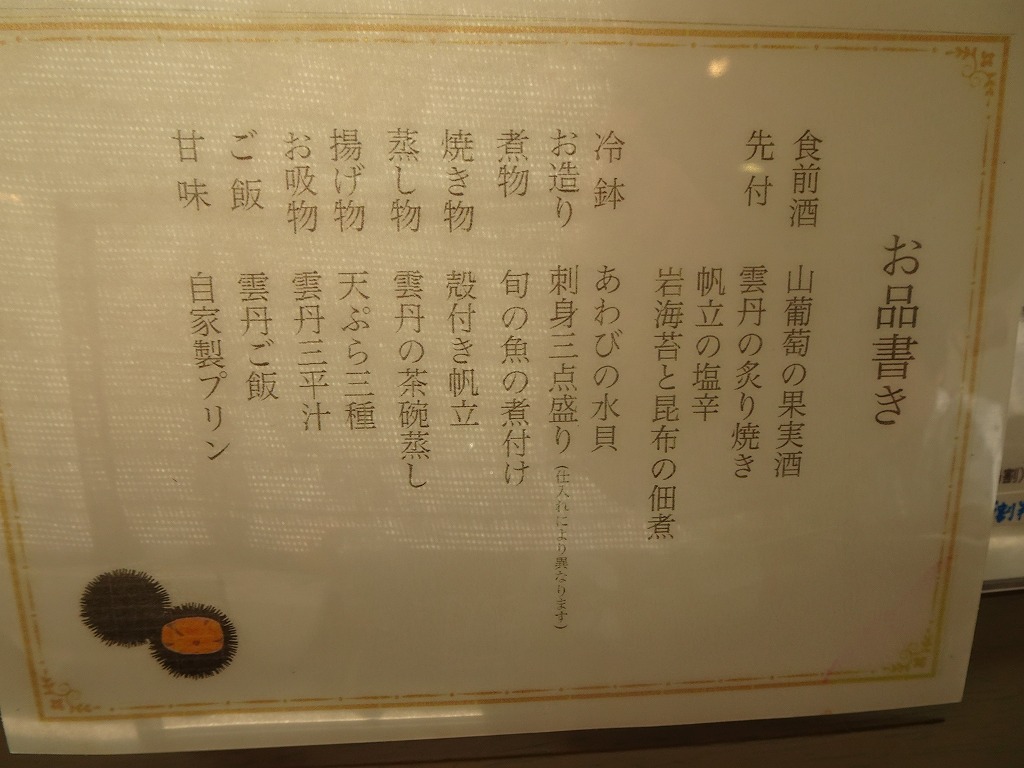 お品書き
食前酒 山葡萄の果実酒
先付 雲丹の炙り焼き
帆立の塩辛
岩海苔と昆布の佃煮
冷鉢 あわびの水貝
お造り 刺身三点盛り (仕入れにより異なります)
煮物 旬の魚の煮付け
焼き物 殻付き帆立
蒸し物 雲丹の茶碗蒸し
揚げ物 天ぷら三種
お吸物 雲丹三平汁
ご飯 雲丹ご飯
甘味 自家製プリン